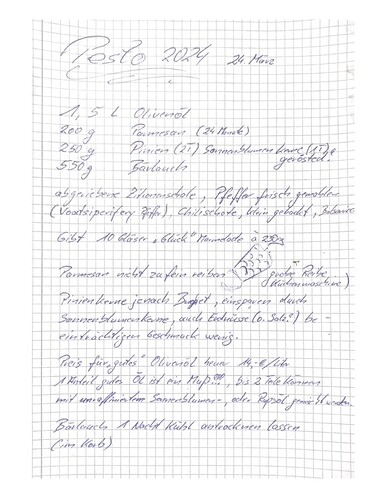 Pesto 2024 24. März
1,5 L Olivenöl
200 g Parmesan (24 Monate)
250 g Pinien (2T) Sonnenblumenkerne (1T) geröstet!
550 g Bärlauch
abgeriebene Zitronenschale, Pfeffer frisch gemahlen
(Voatsiperifery Pfeffer), Chilischote, klein gehackt,
Gibt 10 Gläser „Glück" Marmelade à 230g
Parmesan nicht zu fein reiben grobe Reibe
Küchenmaschine)
Pinienkerne je nach Budget, einsparen durch
Sonnenblumenkerne, auch Erdnüsse (o. Salz!) be-
einträchtigen Geschmack wenig.
Preis für „gutes" Olivenöl heuer 14,-€/Liter
1 Anteil gutes Öl ist ein Muß!!!, bis 2 Teile können
mit unraffiniertem Sonnenblumen-, oder Rapsöl gemischt werden.
Bärlauch 1 Nacht kühl antrocknen lassen
(im Korb)